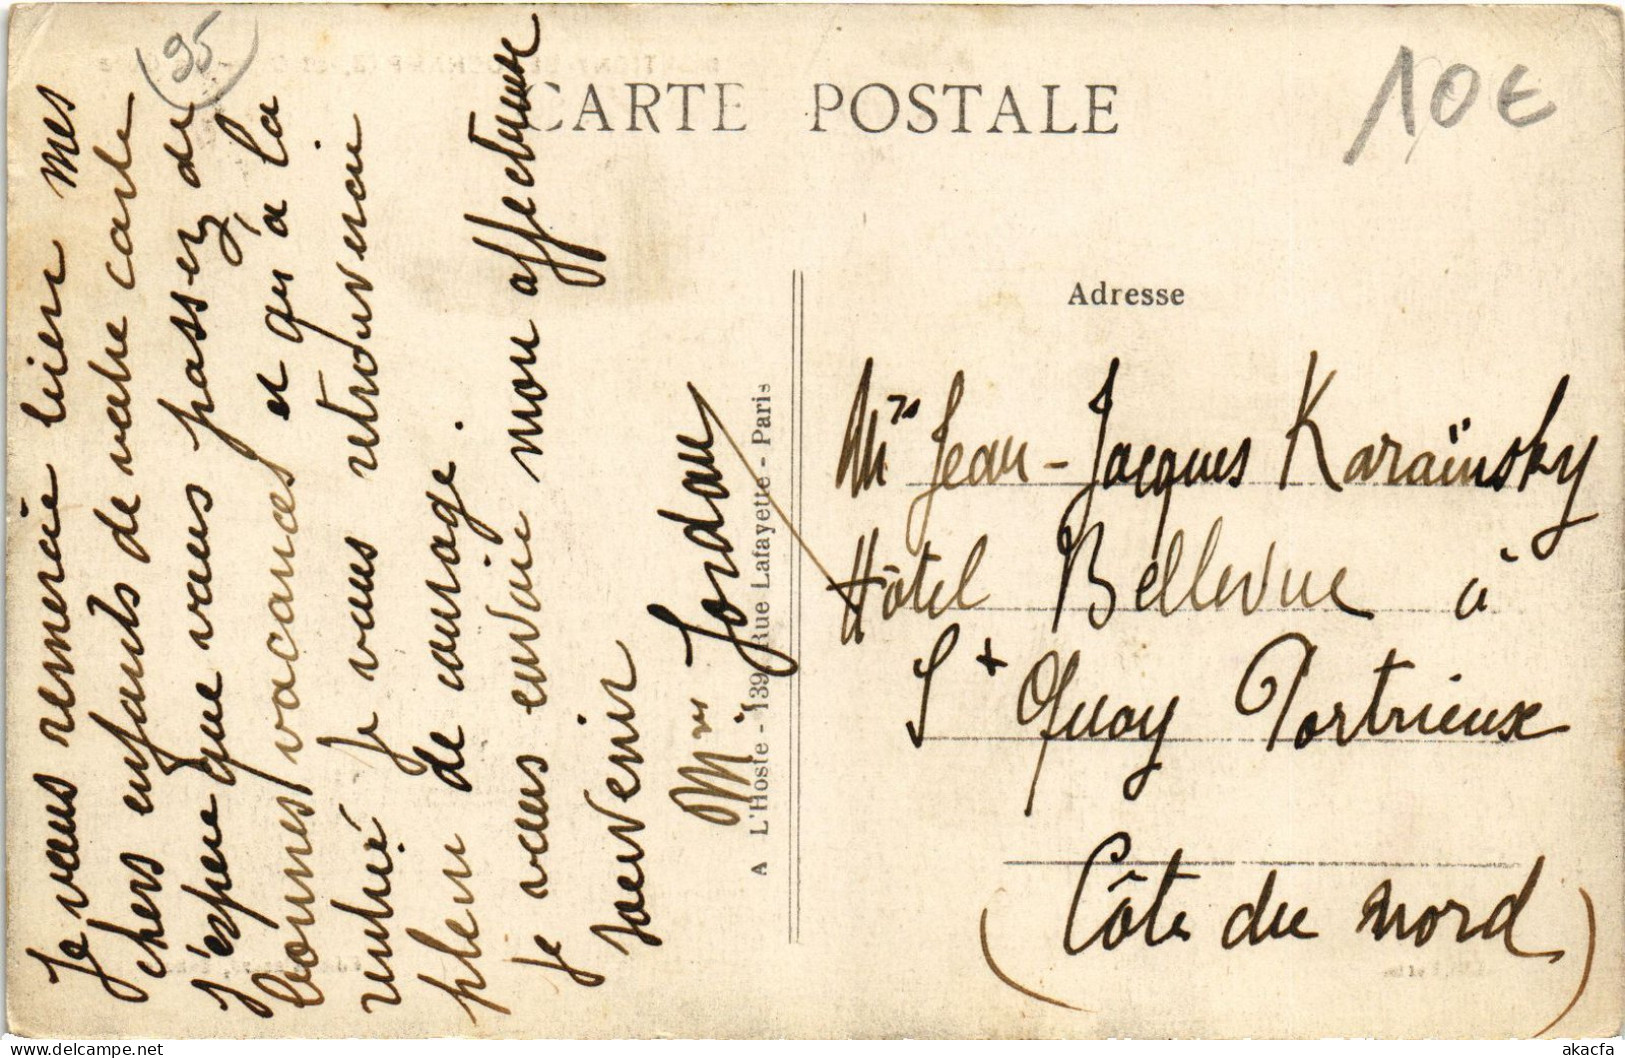 95
CARTE POSTALE
10€
Je vous remercie bien mes
chers enfants de votre carte
j'espere que vous passez de
bonnes vacances et qu'à la
rentré Je vous retrouverai
plein de courage.
Je vous envoie mon affectueuse
souvenir
Mme Jordan
A L'Hoste - 139 Rue Lafayette - Paris
Adresse
Mrs Jean-Jacques Karaïnsky
Hôtel Bellevue à
St Quay Portrieux
(Côte du nord)
akacfa